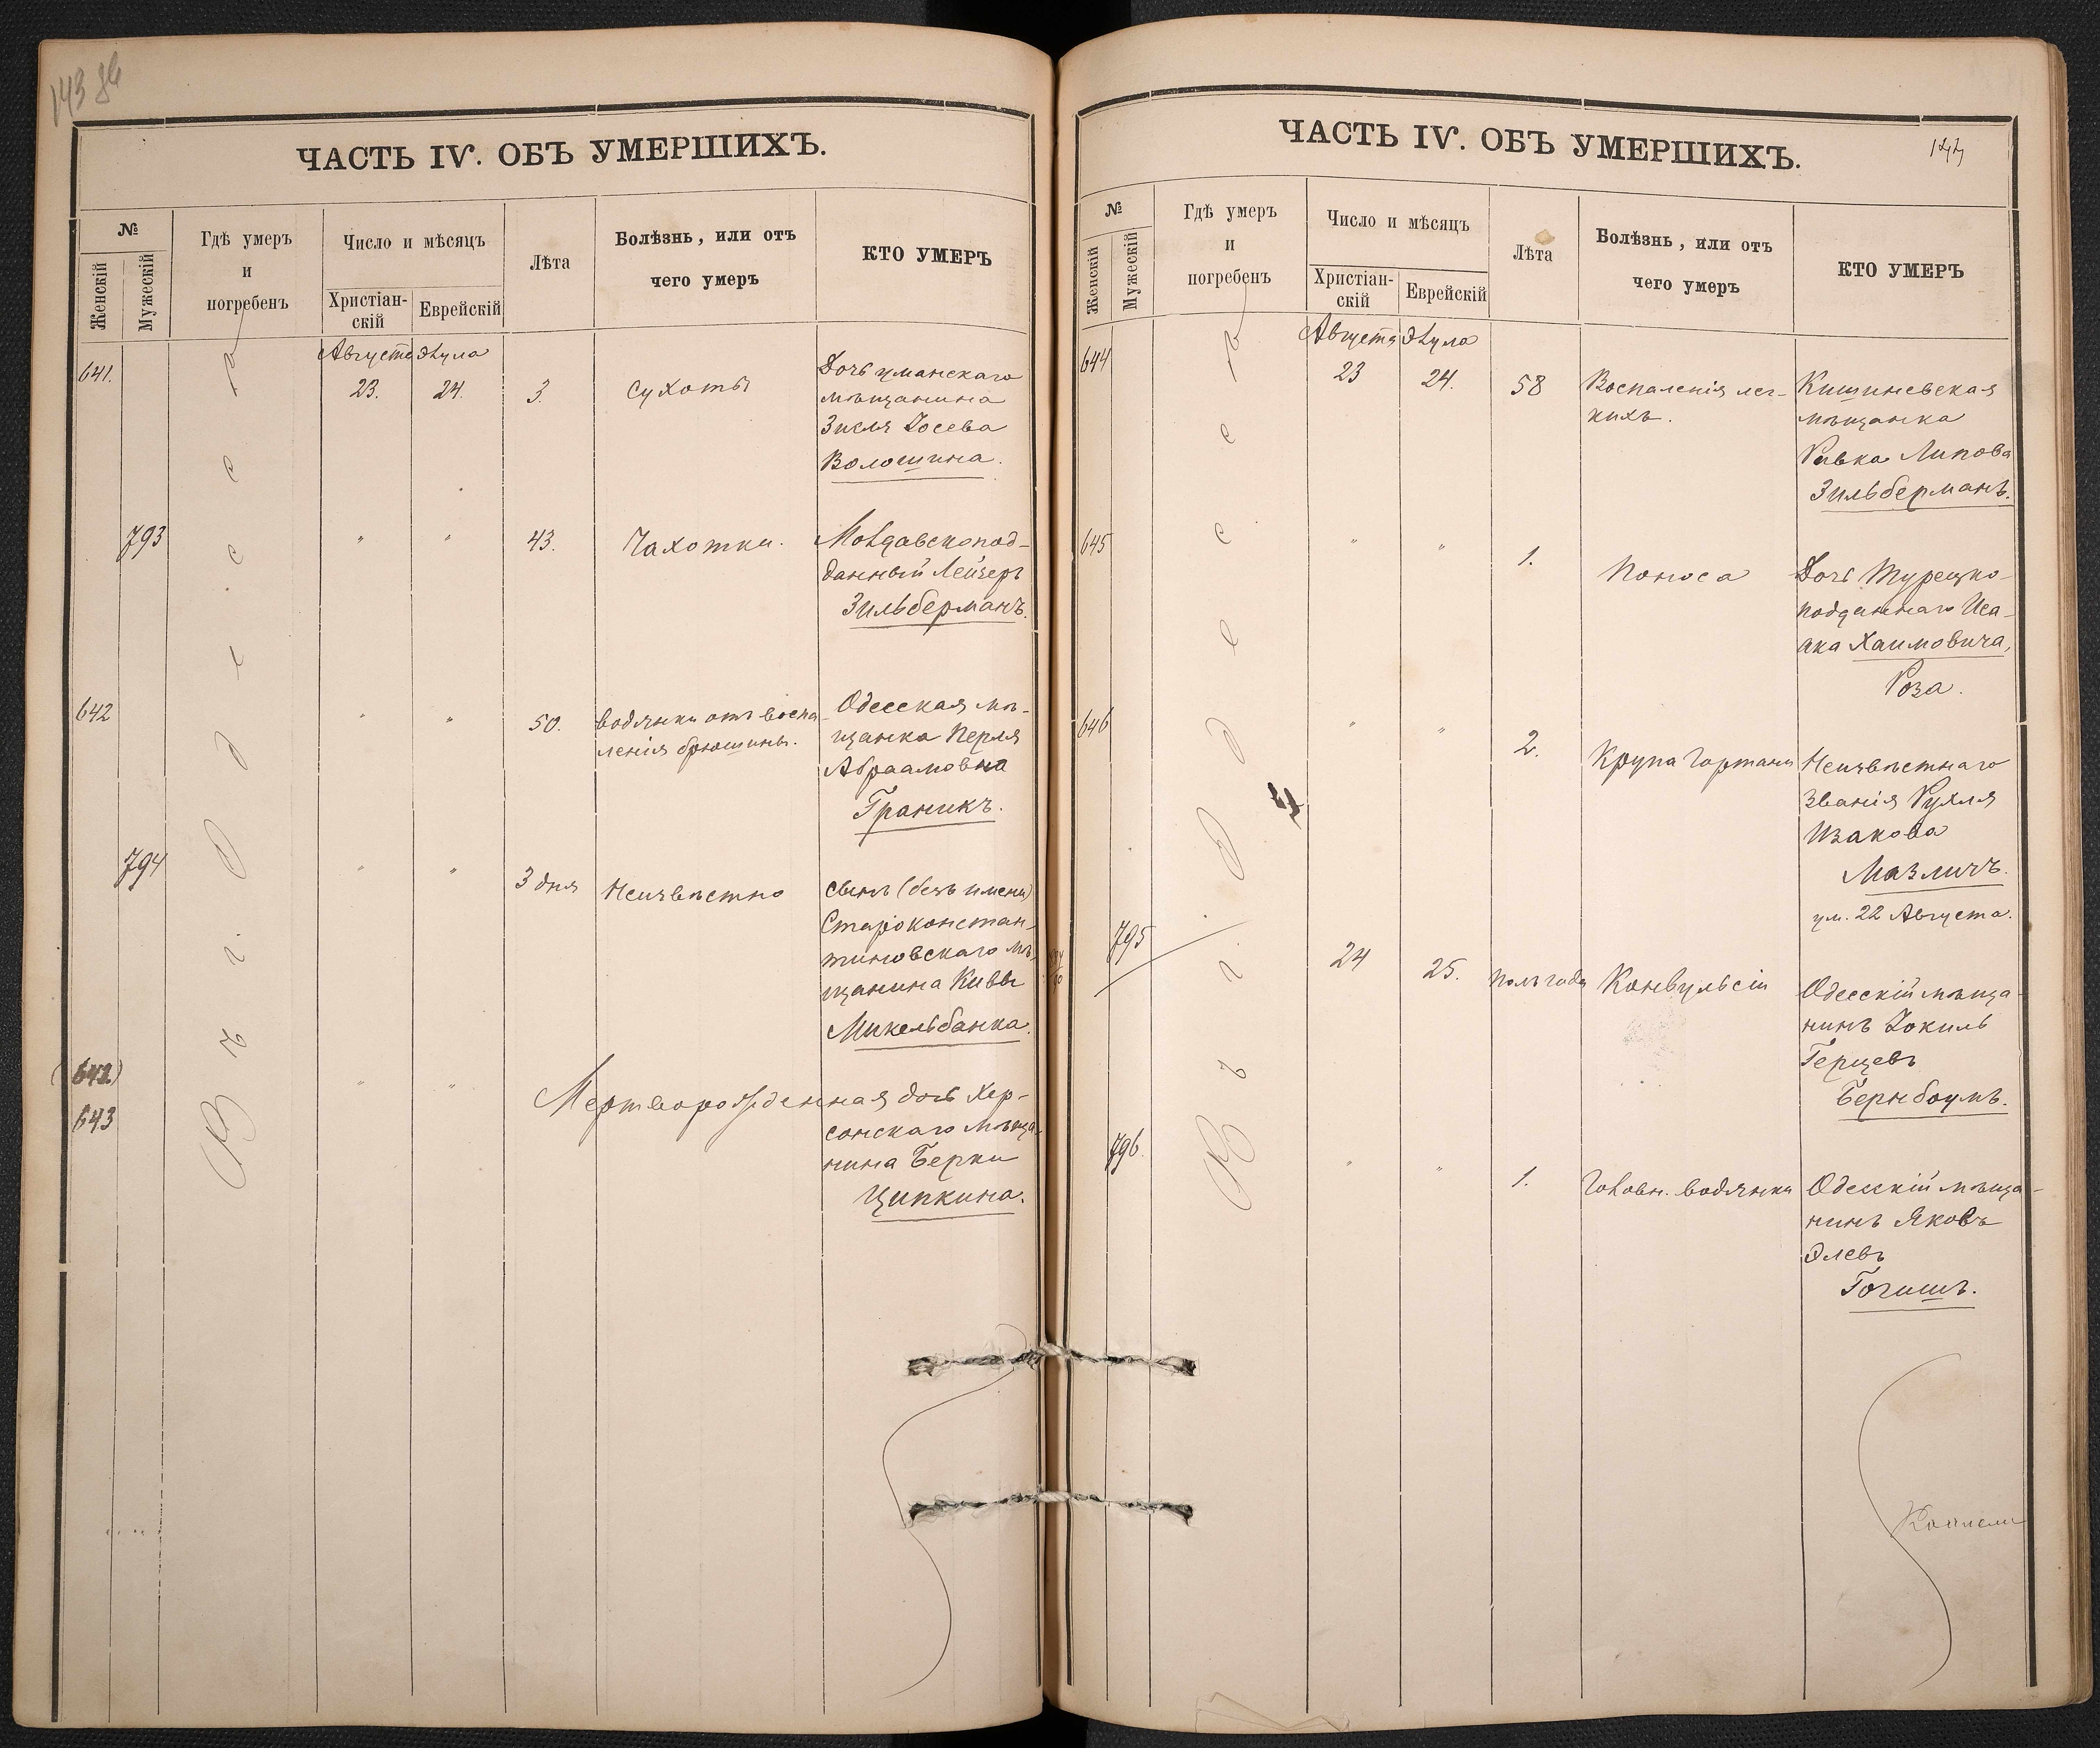 143 об
ЧАСТЬ IV. ОБЪ УМЕРШИХЪ.
№
Женскій
Мужескій
Гдѣ умеръ
и
погребенъ
Число и мѣсяцъ
Христіан-
скій
Еврейскій
Лѣта
Болѣзнь, или отъ
чего умеръ
КТО УМЕРЪ
Въ г. Одессѣ
Августа Элула
641. 23. 24. 3. Сухоты Дочь уманскаго
мѣщанина
Зиселя Іосева
Волошина.
793 " " 43. Чахотки. Молдавскопод-
данный Лейзеръ
Зильберманъ.
642 " " 50. водянки отъ воспа- Одесская мѣ-
ленія брюшины. щанка Перля
Абраамовна
Граникъ.
794 " " 3 дня Неизвѣстно сынъ (безъ имени)
Староконстан-
тиновскаго мѣ-
щанина Кивы
Микельбанка.
(642)
643 " " Мертворожденная дочь Хер-
сонскаго мѣща-
нина Берки
Ципкина.
ЧАСТЬ IV. ОБЪ УМЕРШИХЪ.
144
№
Женскій
Мужескій
Гдѣ умеръ
и
погребенъ
Число и мѣсяцъ
Христіан-
скій
Еврейскій
Лѣта
Болѣзнь, или отъ
чего умеръ
КТО УМЕРЪ
Въ г. Одессѣ
Августа Элула
644 23 24. 58 Воспаленія лег- Кишиневская
кихъ. мѣщанка
Ривка Липова
Зильберманъ.
645 " " 1. Поноса Дочь Турецко-
подданнаго Иса-
ака Хаимовича,
Роза.
646 " " 2. Крупа Гортани Неизвѣстнаго
званія Рухля
Изакова
Мазличъ.
ум. 22 Августа.
795 24 25. полъ года Конвульсіи Одесскій мѣща-
нинъ Іокиль
Герцевъ
Бернбоумъ.
796. " " 1. Головн. водянки Одесскій мѣща-
нинъ Яковъ
Элевъ
Гогишъ.